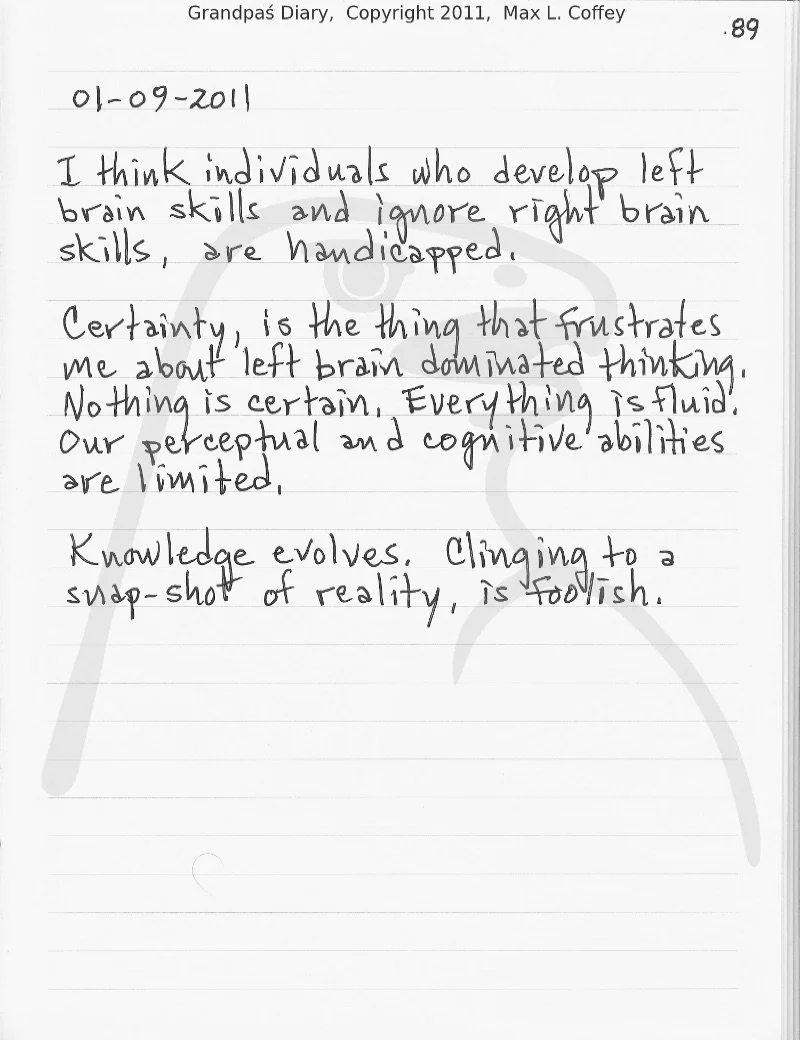 Grandpaś Diary, Copyright 2011, Max L. Coffey
.89
01-09-2011
I think individuals who develop left
brain skills and ignore right brain
skills, are handicapped.
Certainty, is the thing that frustrates
me about left brain dominated thinking.
Nothing is certain. Everything is fluid.
Our perceptual and cognitive abilities
are limited.
Knowledge evolves. Clinging to a
snap-shot of reality, is foolish.